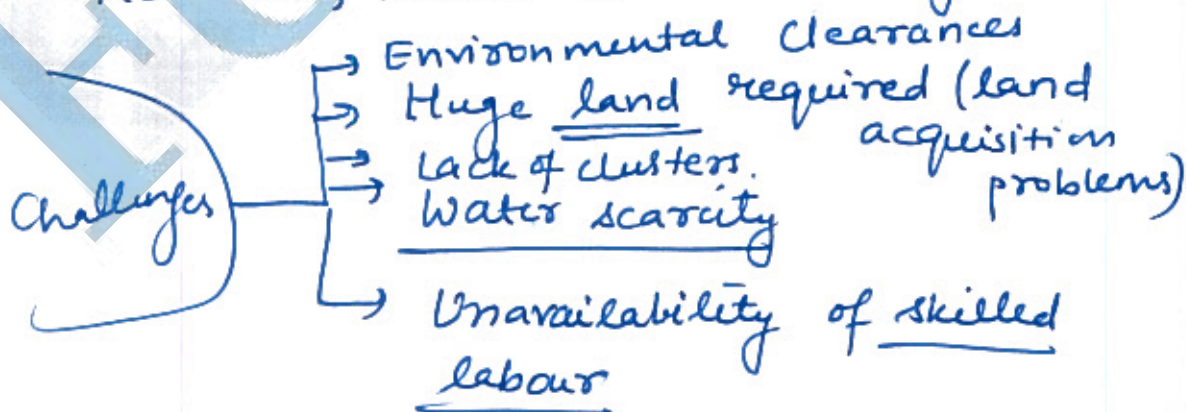 Challenges
Environmental Clearances
Huge land required (land
acquisition
problems)
Lack of clusters.
Water scarcity
Unavailability of skilled
labour